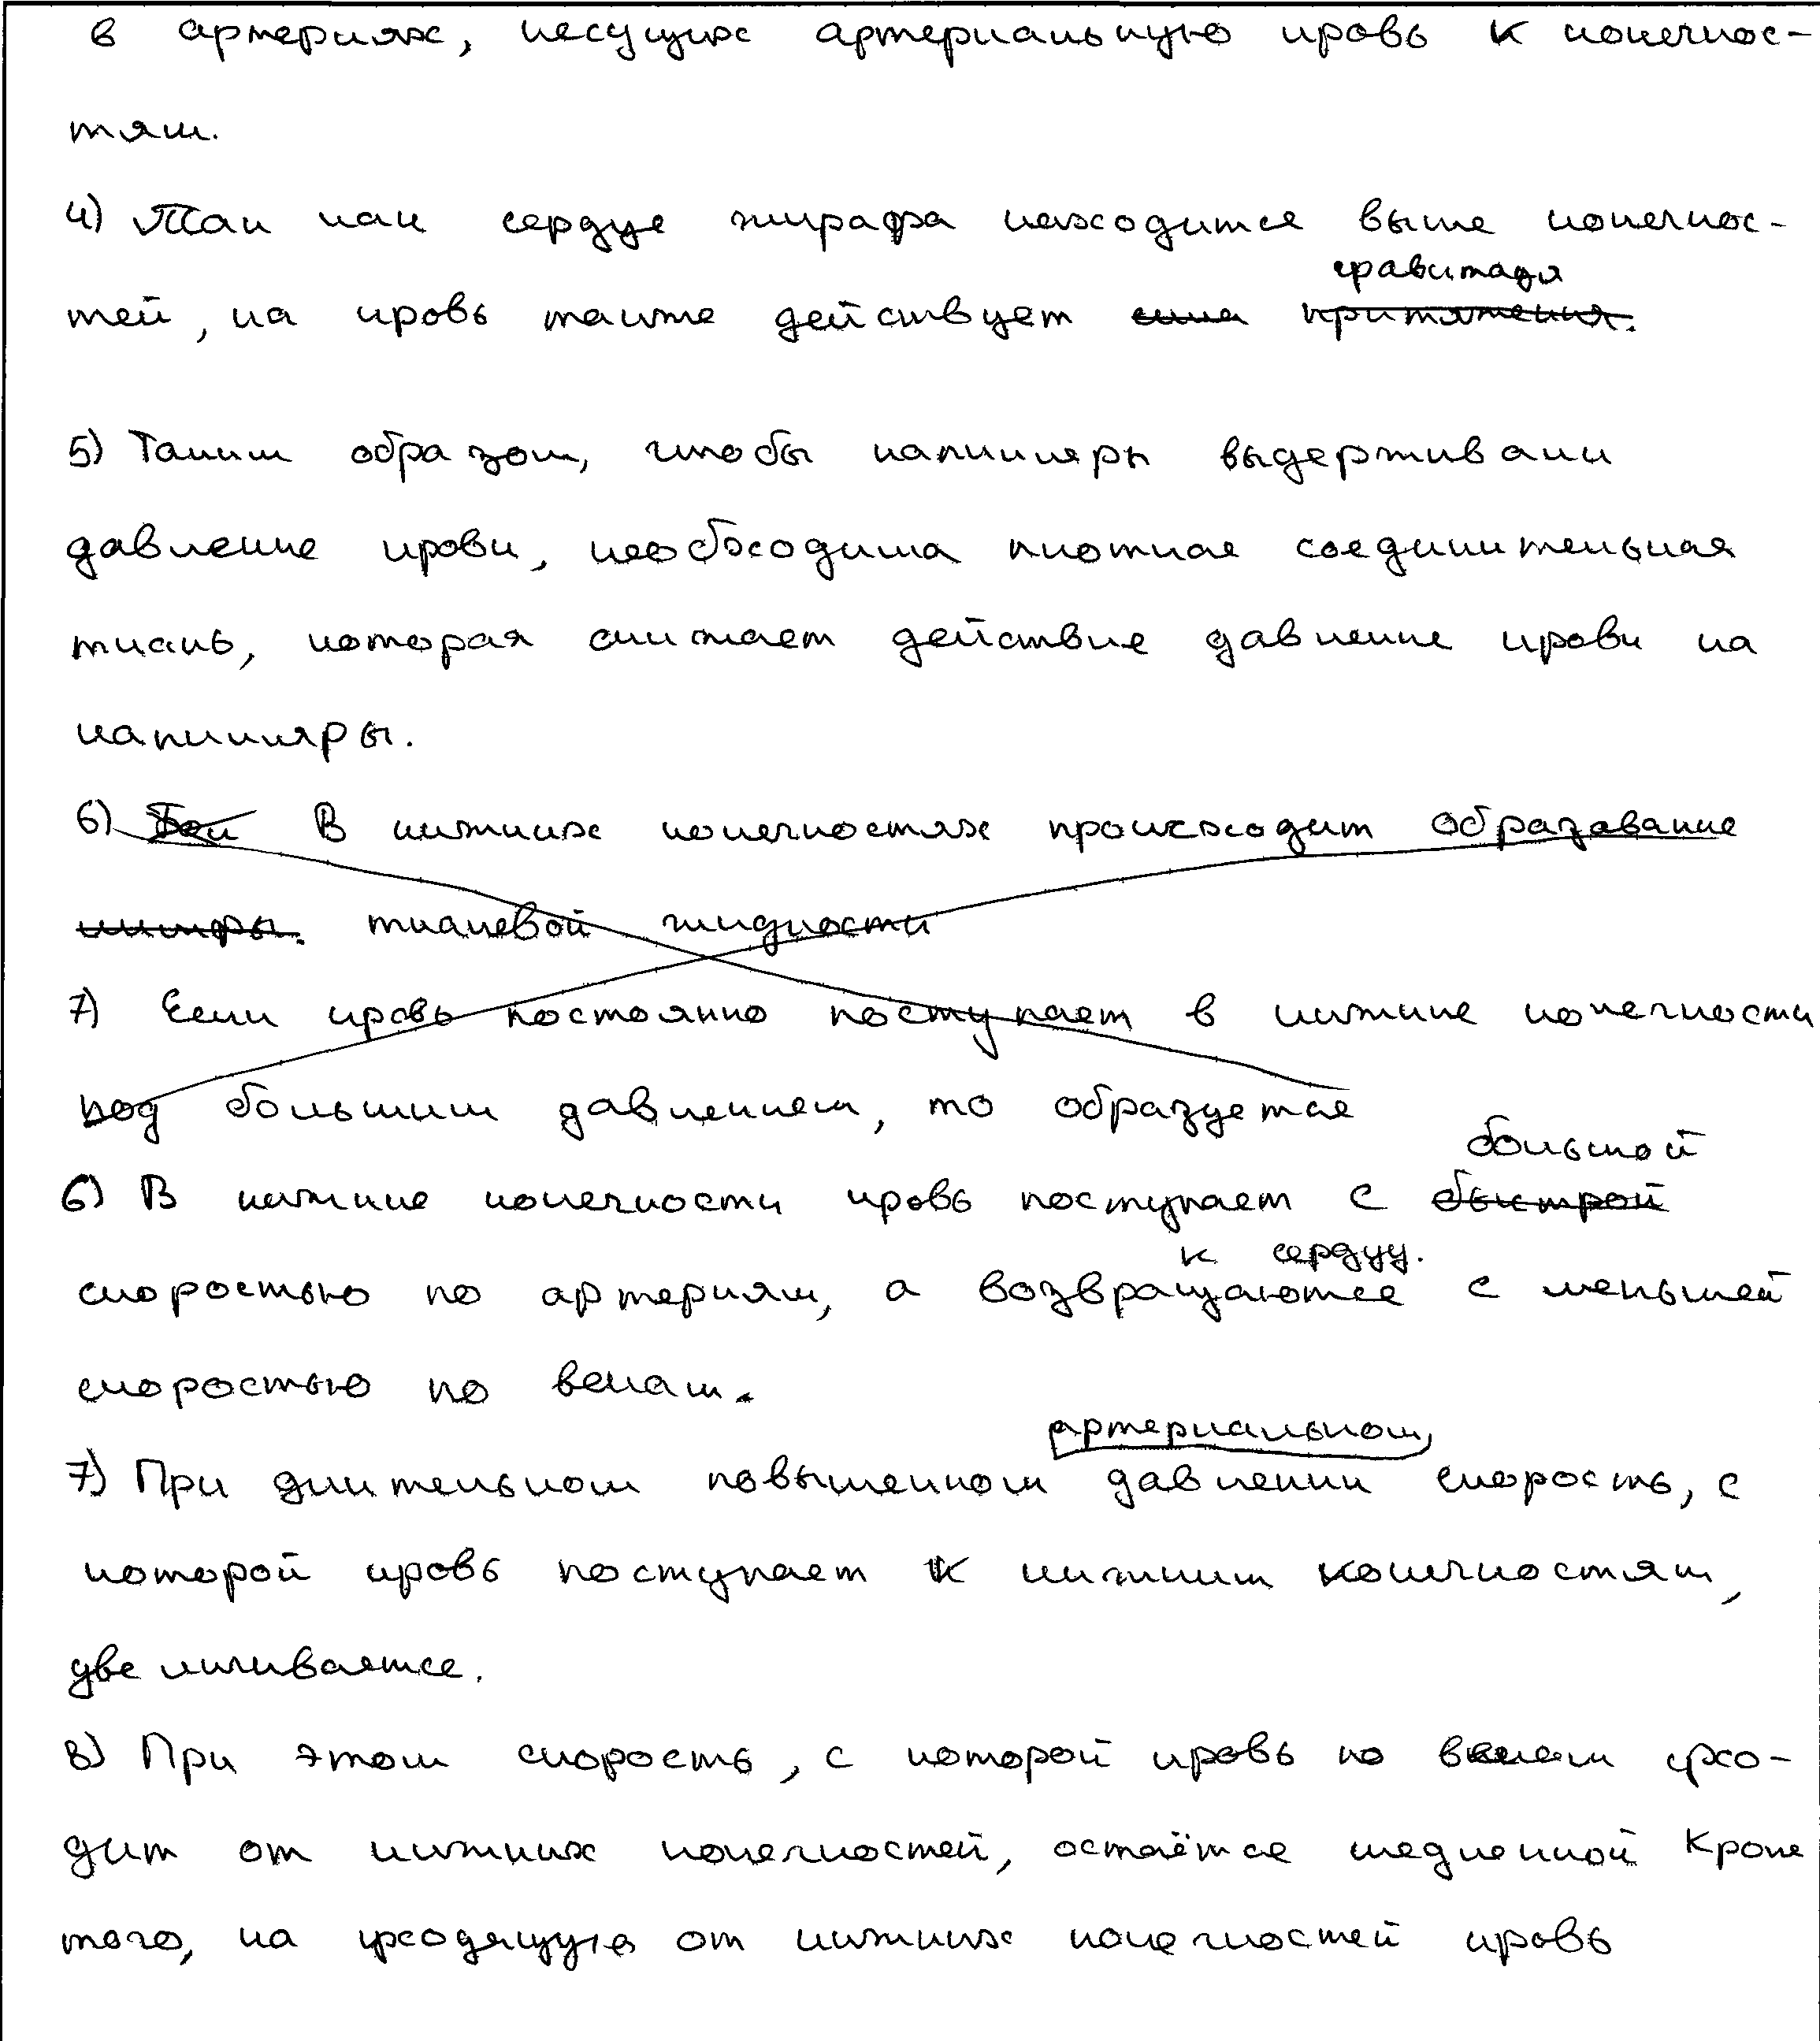 в артериях, несущих артериальную кровь к конечнос-
тям.
4) Так как сердце жирафа находится выше конечнос-
гравитация
тей, на кровь также действует сила притяжения.
5) Таким образом, чтобы капилляры выдерживали
давление крови, необходима плотная соединительная
ткань, которая снижает действие давление крови на
капилляры.
6) В нижних конечностях происходит образование
лимфы. тканевой жидкости
7) Если кровь постоянно поступает в нижние конечности
под большим давлением, то образуется
большой
6) В нижние конечности кровь поступает с быстрой
к сердцу.
скоростью по артериям, а возвращаются с меньшей
скоростью по венам.
артериальном
7) При длительном повышенном давлении скорость, с
которой кровь поступает к нижним конечностям,
увеличивается.
8) При этом скорость, с которой кровь по венам ухо-
дит от нижних конечностей, остаётся медленной Кроме
того, на уходящую от нижних конечностей кровь